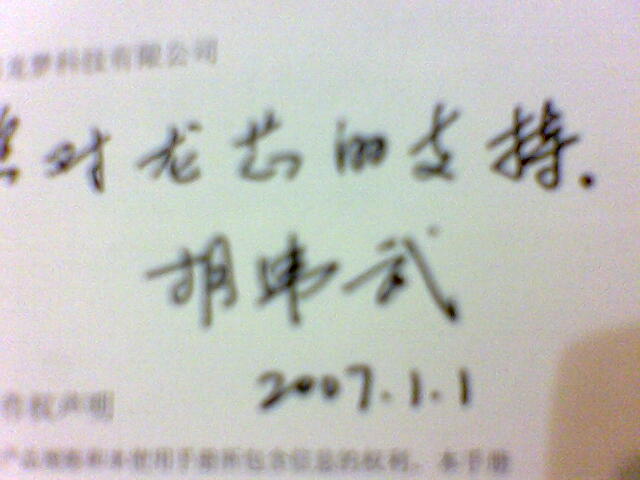 龙梦科技有限公司
对龙芯的支持.
胡伟武
2007.1.1
作权声明
使用手册所包含信息的权利。本手册